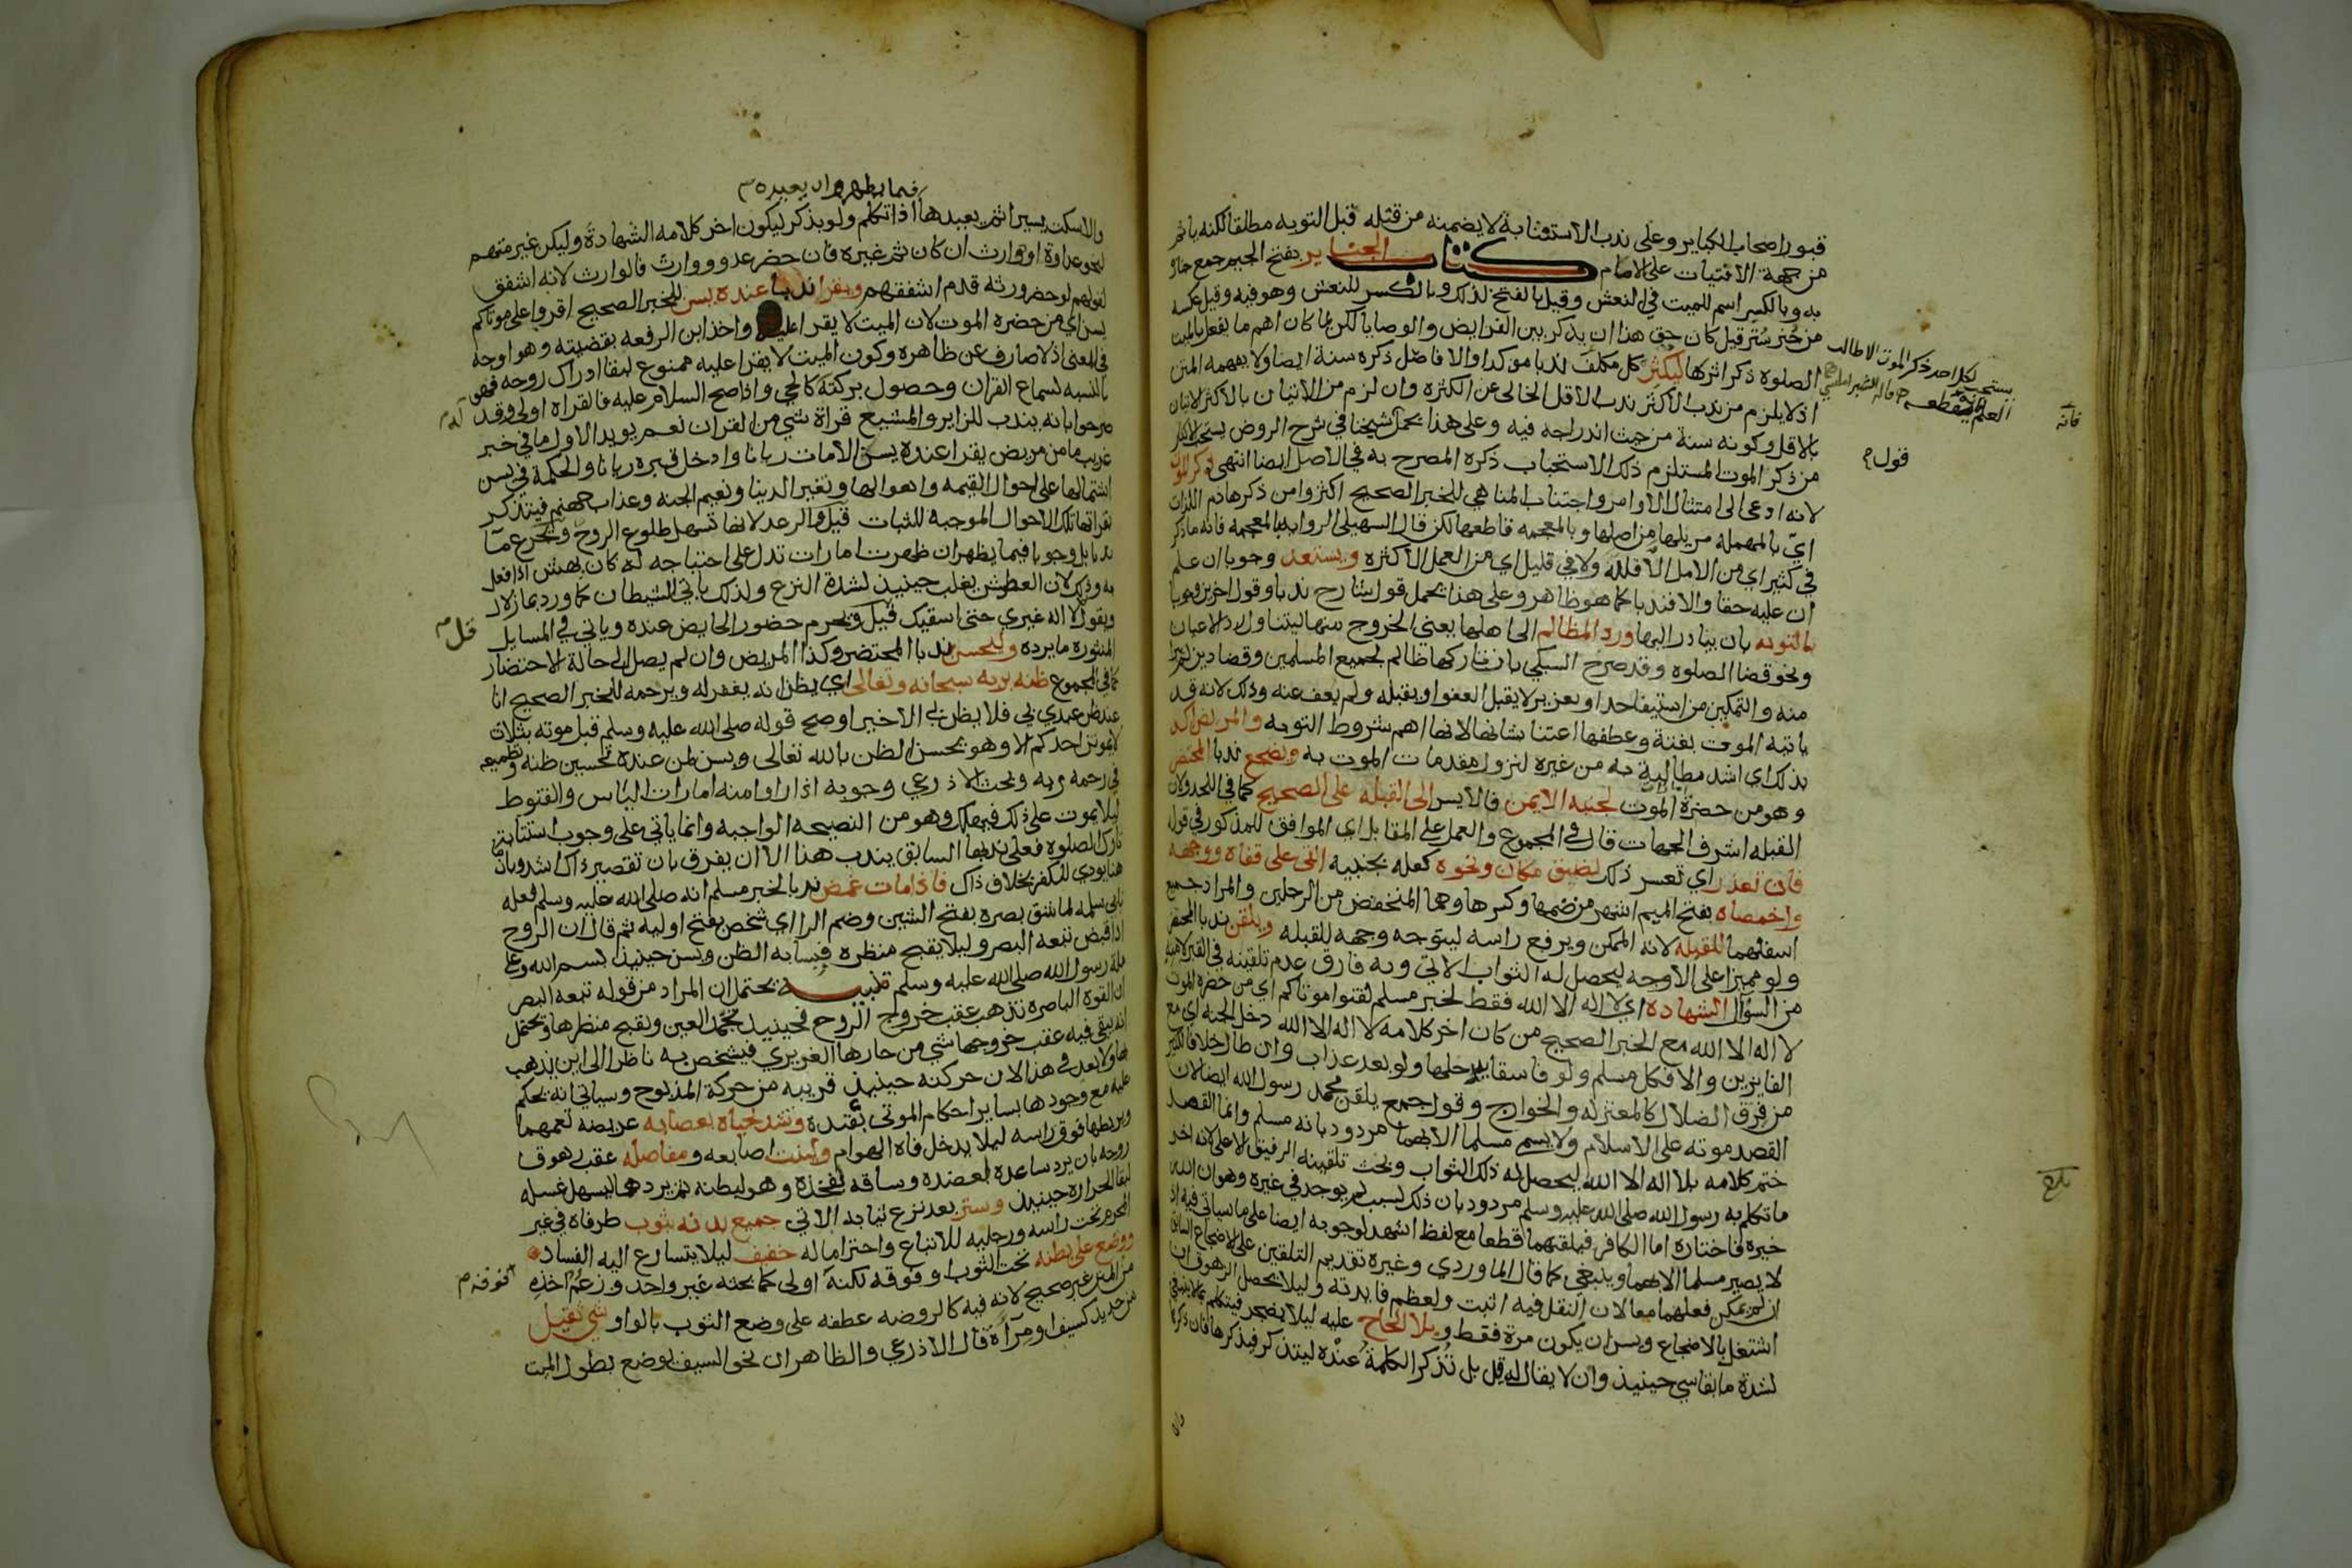 قبور اصحاب الكباير وعلى ندب الاستفتابة لا يضمنه من قتله قبل التوبه مطلقا لكنه ياثم
من جهة الافتيات على الامام كتاب الجنايز بفتح الجيم جمع جنازة
به وبالكسر اسم للميت في النعش وقيل بالفتح لذلك وبالكسر للنعش وهو فيه وقيل عكسه
من جنز ستر قيل كان حق هذا ان يذكر بين الفرايض والوصايا لكن لما كان اهم ما يفعل بالميت
الصلوه ذكر اثرها ليكثر كل مكلف ندبا موكدا والا فاصل ذكره سنة ايضا ولا يفهمه المتن
اذ لا يلزم من ندب الاكثر ندب الاقل الخالي عن الكثره وان لزم من الاتيان بالاكثر الاتيان
بالاقل وكونه سنة من حيث اندراجه فيه وعلى هذا يحمل شيخنا في شرح الروض يستحب الاكثار
من ذكر الموت المستلزم ذلك الاستحباب ذكره المصرح به في الاصل ايضا انتهى ذكر الموت
لانه ادعى الى امتثال الاوامر واجتناب المناهي للخبر الصحيح اكثروا من ذكر هاذم اللذات
اي بالمهملة مزيلها من اصلها وبالمعجمه قاطعها لكن قال السهيلي الروايه بالمعجمه فانه ما ذكر
في كثير اي من الامل الا قلله ولا في قليل اي من العمل الا كثره ويستعد وجوبا ان علم
ان عليه حقا والا فندبا كما هو ظاهر وعلى هذا يحمل قول شارح ندبا وقول اخرين وجوبا
بالتوبه بان يبادر اليها ورد المظالم الى اهلها يعني الخروج منها ليتناول رد الاعيان
ونحو قضا الصلوه وقد صرح السبكي بان تاركها ظالم لجميع المسلمين وقضا دين لم يبرا
منه والتمكين من استيفا حد او تعزير لا يقبل العفو او يقبله ولم يعف عنه وذلك لانه قد
ياتيه الموت بغتة وعطفها اعتنا بشانها لانها اهم شروط التوبه والمريض اكد
بذلك اي اشد مطالبة به من غيره لنزول مقدمات الموت به ويضجع ندبا المحتضر
وهو من حضره الموت لجنبه الايمن فالايسر الى القبله على الصحيح كما في اللحد ولان
القبله اشرف الجهات قال في المجموع والعمل على المقابل اي الموافق للمذكور في قوله
فان تعذر اي تعسر ذلك لضيق مكان ونحوه كعله بجنبيه القي على قفاه ووجهه
واخمصاه بفتح الميم اشهر من ضمها وكسرها وهما المنخفض من الرجلين والمراد جميع
اسفلهما للقبله لانه الممكن ويرفع راسه ليتوجه وجهه للقبله ويلقن ندبا المحتضر
ولو مميزا على الاوجه ليحصل له الثواب الاتي وبه فارق عدم تلقينه في القبر لامنه
من السوال الشهاده اي لا اله الا الله فقط لخبر مسلم لقنوا موتاكم اي من حضره الموت
لا اله الا الله مع الخبر الصحيح من كان اخر كلامه لا اله الا الله دخل الجنه اي مع
الفايزين والا فكل مسلم ولو فاسقا يدخلها ولو بعد عذاب وان طال خلافا لكثير
من فرق الضلال كالمعتزله والخوارج وقول جمع يلقن محمد رسول الله ايضا لان
القصد موته على الاسلام ولا يسمى مسلما الا بهما مردود بانه مسلم وانما القصد
ختم كلامه بلا اله الا الله ليحصل له ذلك الثواب وبحث تلقينه الرفيق الاعلى لانه اخر
ما تكلم به رسول الله صلى الله عليه وسلم مردود بان ذلك لسبب لم يوجد في غيره وهو ان الله
خيره فاختاره اما الكافر فيلقنهما قطعا مع لفظ اشهد لوجوبه ايضا على ما سياتي فيه اذ
لا يصير مسلما الا بهما وينبغي كما قال الماوردي وغيره تقديم التلقين على الاضجاع السابق
ان لم يمكن فعلهما معا لان النقل فيه اثبت ولعظم فايدته وليلا يحصل الزهوق ان
اشتغل بالاضجاع ويسن ان يكون مرة فقط وبلا الحاح عليه ليلا يضجر فيتكلم بما لا ينبغي
لشدة ما يقاسي حينيذ وان لا يقال له قل بل تذكر الكلمة عنده ليتذكر فيذكرها فان ذكرها
يستحب لكل احد ذكر الموت الا طالب
العلم
قول م
فانه
بلغ
فيما يظهر وان يعيده م
والا سكت يسيرا ثم يعيدها اذا تكلم ولو بذكر ليكون اخر كلامه الشهادة وليكن غير متهم
لنحو عداوة او وارث ان كان ثم غيره فان حضر عدو ووارث فالوارث لانه اشفق
لقولهم لو حضر ورثه قدم اشفقهم ويقرا ندبا عنده يس للخبر الصحيح اقروا على موتاكم
يس اي من حضره الموت لان الميت لا يقرا عليه واخذ ابن الرفعه بقضيته وهو اوجه
في المعنى اذ لا صارف عن ظاهره وكون الميت لا يقرا عليه ممنوع لبقا ادراك روحه فهو
بالنسبه لسماع القران وحصول بركته كالحي واذا صح السلام عليه فالقراه اولى وقد
صرحوا بانه يندب للزاير والمشيع قراة شي من القران نعم يويد الاول ما في خبر
غريب ما من مريض يقرا عنده يس الا مات ريانا وادخل قبره ريانا والحكمة في يس
اشتمالها على احوال القيمه واهوالها وتغير الدينا ونعيم الجنه وعذاب جهنم فيتذكر
بقراتها تلك الاحوال الموجبه للثبات قيل والرعد لانها تسهل طلوع الروح ويجرع ما
ندبا بل وجوبا فيما يظهر ان ظهرت امارات تدل على احتياجه له كان يهش اذا فعل
به وذلك لان العطش يغلب حينيذ لشدة النزع ولذلك ياتي الشيطان كما ورد بما زلال
ويقول لا اله غيري حتى اسقيك قيل ويحرم حضور الحايض عنده وياتي في المسايل
المنثوره ما يرده وليحسن ندبا المحتضر وكذا المريض وان لم يصل الى حالة الاحتضار
كما في المجموع ظنه بربه سبحانه وتعالى اي يظن انه يغفر له ويرحمه للخبر الصحيح انا
عند ظن عبدي بي فلا يظن بي الا خيرا وصح قوله صلى الله عليه وسلم قبل موته بثلاث
لا يموتن احدكم الا وهو يحسن الظن بالله تعالى ويسن لمن عنده تحسين ظنه وتطميعه
في رحمه ربه وبحث الاذرعي وجوبه اذا راوا منه امارات الياس والقنوط
ليلا يموت على ذلك فيهلك وهو من النصيحه الواجبه وانما ياتي على وجوب استتابة
تارك الصلوه فعلى ندبها السابق يندب هذا الا ان يفرق بان تقصير ذاك اشد وبان ما
هنا يودي للكفر بخلاف ذاك فاذا مات غمض ندبا لخبر مسلم انه صلى الله عليه وسلم فعله
بابي سلمه لما شق بصره بفتح الشين وضم الرا اي شخص بفتح اوليه ثم قال ان الروح
اذا قبض تبعه البصر وليلا يقبح منظره فيسا به الظن ويسن حينيذ بسم الله وعلى
ملة رسول الله صلى الله عليه وسلم تنبيه يحتمل ان المراد من قوله تبعه البصر
ان القوة الباصره تذهب عقب خروج الروح فحينيذ تجمد العين ويقبح منظرها ويحتمل
انه يبقى فيه عقب خروجها شي من حارها الغريزي فيشخص به ناظرا الى اين يذهب
بها ولا بعد في هذا لان حركته حينيذ قريبه من حركة المذبوح وسياتي انه يحكم
عليه مع وجودها بساير احكام الموتى بقيده وشد لحياه بعصابه عريضه تعمهما
ويربطها فوق راسه ليلا يدخل فاه الهوام ولينت اصابعه ومفاصله عقب زهوق
روحه بان يرد ساعده لعضده وساقه لفخذه وهو لبطنه ثم يردها ليسهل غسله
لبقا الحراره حينيذ وستر بعد نزع ثيابه الاتي جميع بدنه بثوب طرفاه في غير
المحرم تحت راسه ورجليه للاتباع واحتراما له خفيف ليلا يتسارع اليه الفساد
ووضع على بطنه تحت الثوب او فوقه لكنه اولى كما بحثه غير واحد وزعم اخذه
من المتن غير صحيح لانه فيه كالروضه عطفه على وضع الثوب بالواو شي ثقيل
من حديد كسيف او مرآة قال الاذرعي والظاهر ان نحو السيف يوضع بطول الميت
قل م